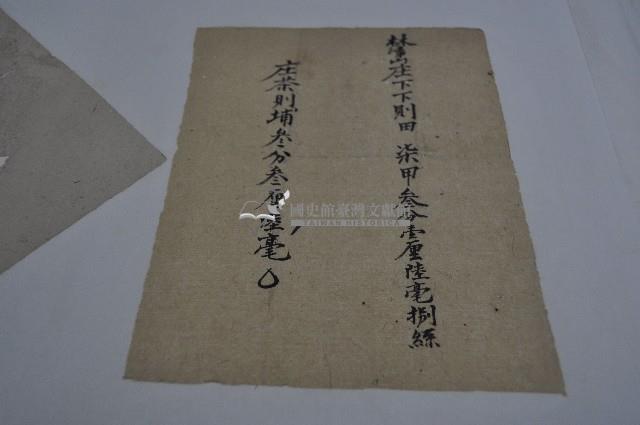 林㘵庄下下則田 柒甲叁分壹厘陸毫捌絲
庄茶則埔叁分叁厘陸毫
國史館臺灣文獻館
TAIWAN HISTORICA